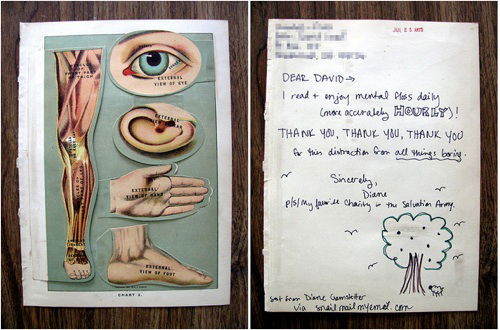 EXTERNAL
VIEW OF EYE
EXTERNAL
VIEW OF HAND
EXTERNAL
VIEW OF FOOT
CHART 3.
JUL 25
DEAR DAVID→
I read + enjoy mental floss daily
(more accurately HOURLY)!
THANK YOU, THANK YOU, THANK YOU
for this distraction from all things boring.
Sincerely,
Diane
P/S/ My favorite Charity is the Salvation Army.
sent from Diane
via snailmailmyemail.com